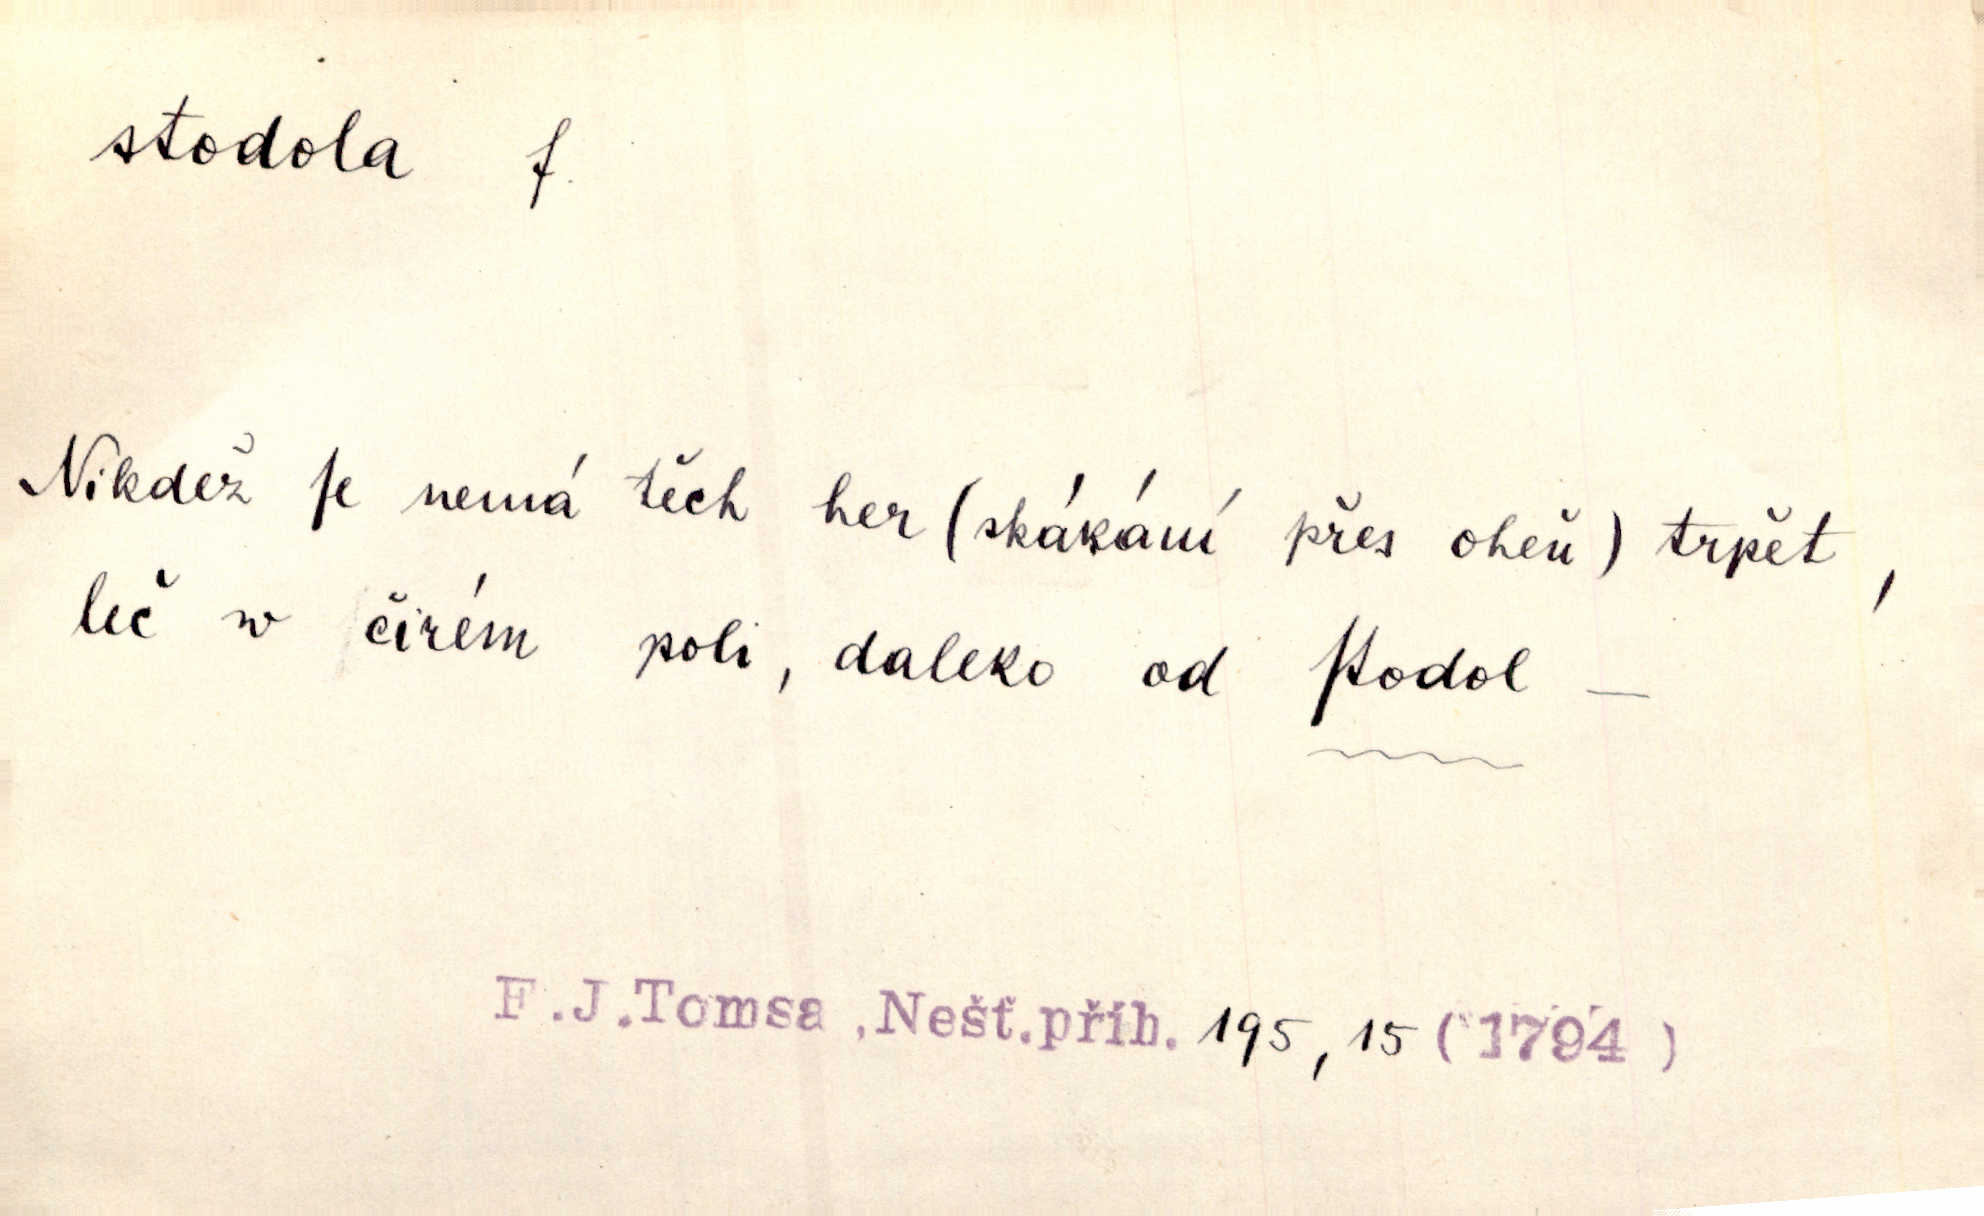 stodola f.
Nikdež ſe nemá těch her (skákání přes oheň) trpět,
leč w čirém poli, daleko od ſtodol —
F.J.Tomsa ,Nešť.příh. 195, 15 (1794)